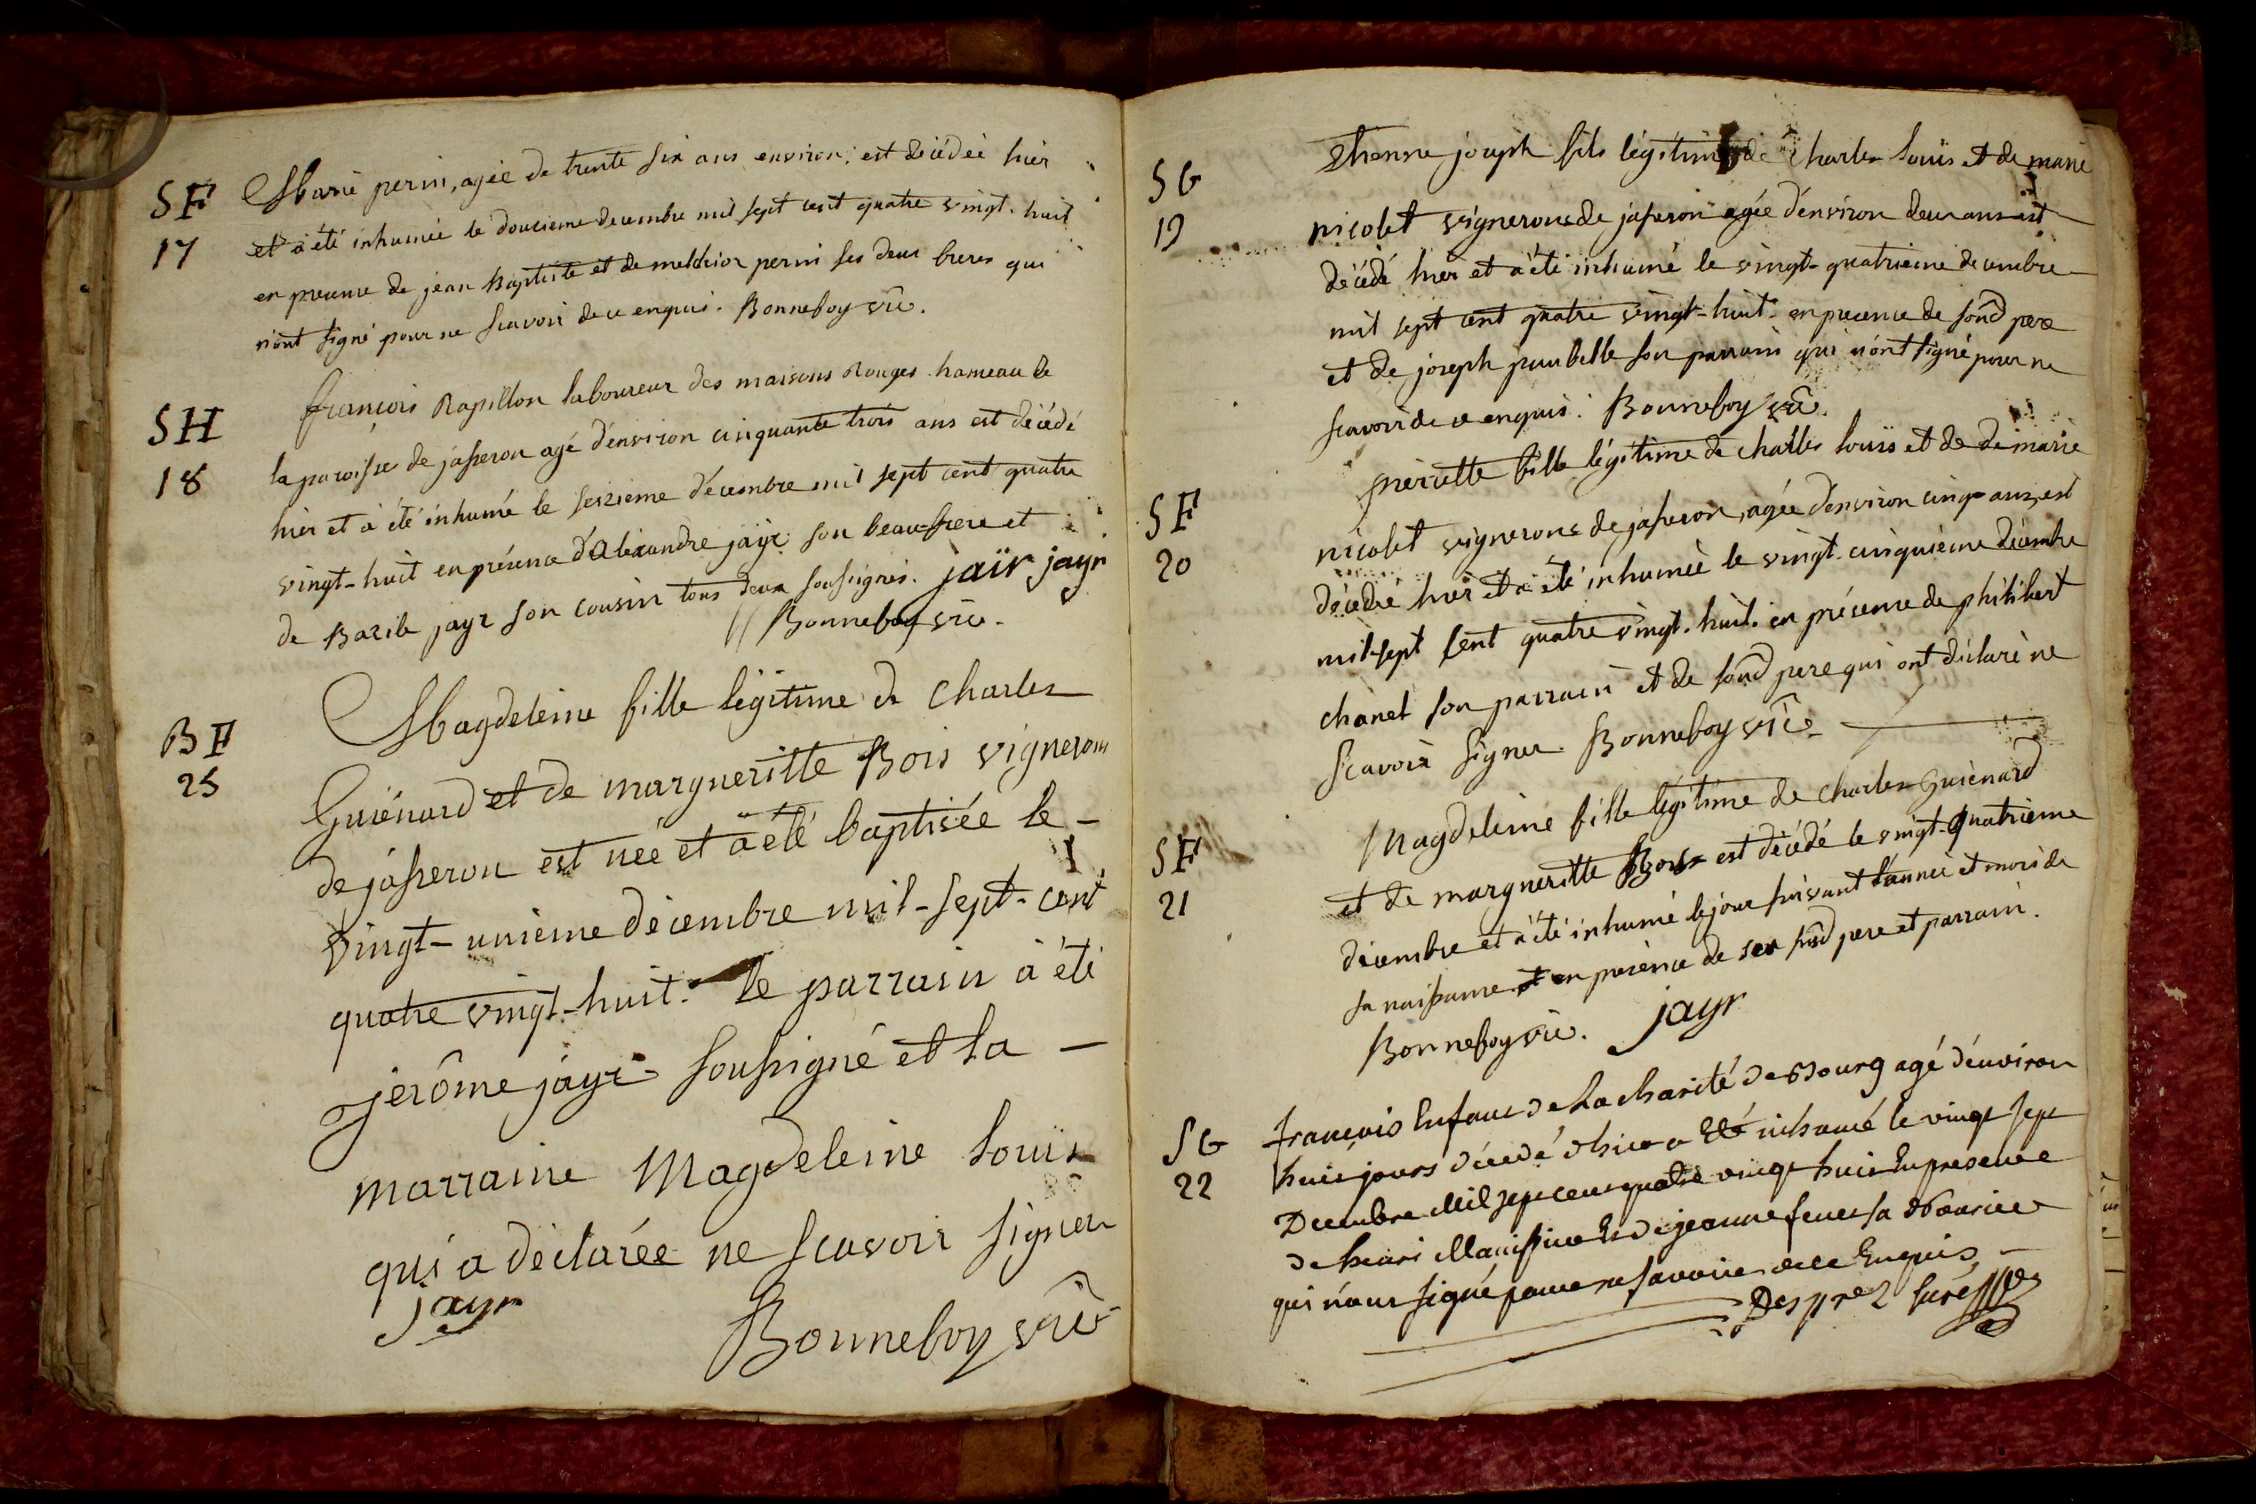 SF
17
Marie perrin, agée de trente six ans environ, est décédée hier
et a été inhumée le douzieme decembre mil sept cent quatre vingt-huit
en presence de jean Baptiste et de melchior perrin ses deux freres qui
n'ont signé pour ne scavoir de ce enquis. Bonnefoy vic.
SH
18
françois Rapillon laboureur des maisons Rouges hameau de
la paroisse de jasseron agé d'environ cinquante trois ans est décédé
hier et a été inhumé le seizieme décembre mil sept cent quatre
vingt-huit en présence d'Alexandre jayr son beau-frere et
de Bazile jayr son cousin tous deux soussignés. jaïr jayr
Bonnefoy vic.
BF
25
Magdeleine fille légitime de Charles
Guiénard et de margueritte Bois vignerons
de jásseron est née et a été baptisée le -
vingt-unieme décembre mil-sept-cent
quatre vingt-huit. Le parrain à été
jerôme jayr soussigné et la -
marraine Magdeleine Louis
qui a déclarée ne scavoir signer
jayr
Bonnefoy vic
SG
19
Ethienne joseph fils légitime de Charles Louis et de marie
nicolet vignerons de jasseron agée d'environ deux ans est
décédé hier et a été inhumé le vingt-quatrieme decembre
mil sept cent quatre vingt-huit en presence de sond pere
et de joseph son parrain qui n'ont signé pour ne
scavoir de ce enquis. Bonnefoy vic.
SF
20
pierrette fille légitime de charles Louis et de de marie
nicolet vignerons de jasseron, agée d'environ cinq ans, est
décédée hier et a été inhumée le vingt-cinquieme décembre
mil-sept cent quatre vingt-huit. en présence de philibert
chanel son parrain et de sond pere qui ont déclaré ne
scavoir signer. Bonnefoy vic
SF
21
Magdeleine fille légitime de Charles Guiénard
et de margueritte Bois est décédé le vingt-quatrieme
décembre et a été inhumé le jour suivant l'année et mois de
sa naissance et en presence de ses susd pere et parrain.
Bonnefoy vic. jayr
SG
22
françois Enfant de La charité de Bourg agé d'environ
huit jours décédé d'hier a Eté inhumé le vingt sept
Decembre Mil sept cent quatre vingt huit En presence
de henri et de jeanne sa Nourrice
qui n'ont signé pour ne savoir de ce Enquis
Desprez curé